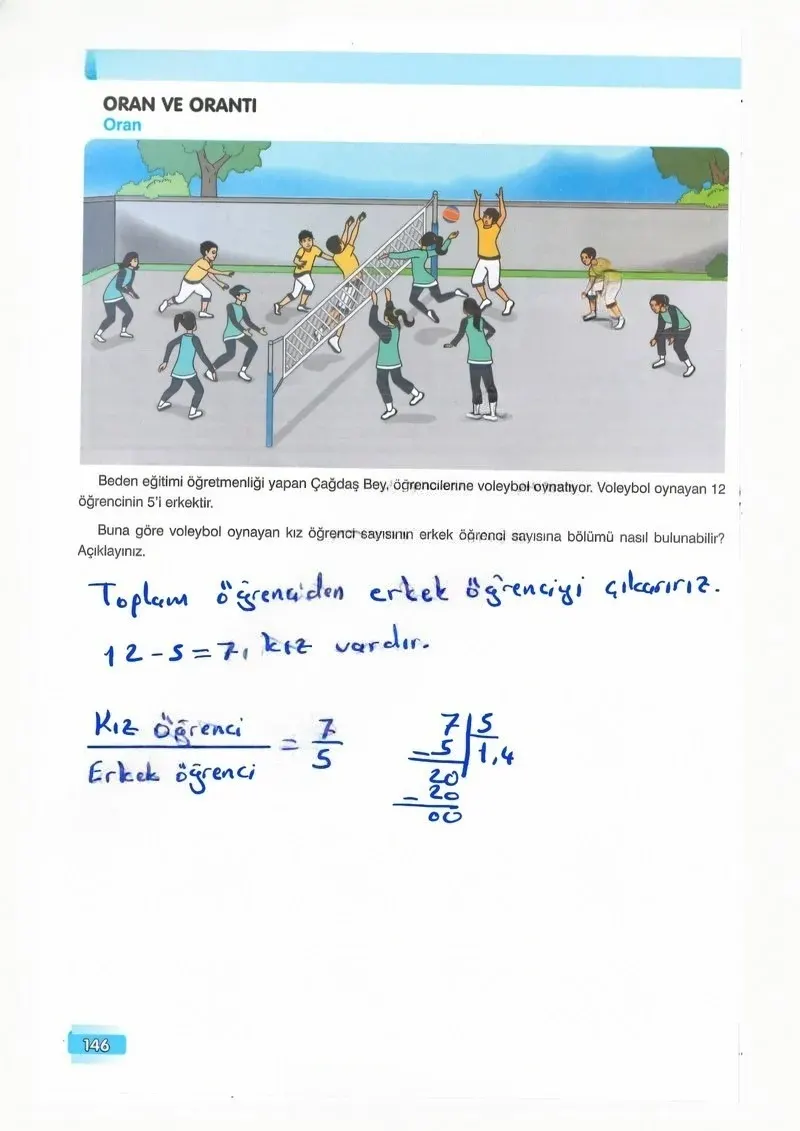 ORAN VE ORANTI
Oran
Beden eğitimi öğretmenliği yapan Çağdaş Bey, öğrencilerine voleybol oynatıyor. Voleybol oynayan 12
öğrencinin 5'i erkektir.
Buna göre voleybol oynayan kız öğrenci sayısının erkek öğrenci sayısına bölümü nasıl bulunabilir?
Açıklayınız.
Toplam öğrenciden erkek öğrenciyi çıkarırız.
12-5=7, kız vardır.
Kız öğrenci = 7 7 5
Erkek öğrenci 5 -5 1,4
20
- 20
00
146